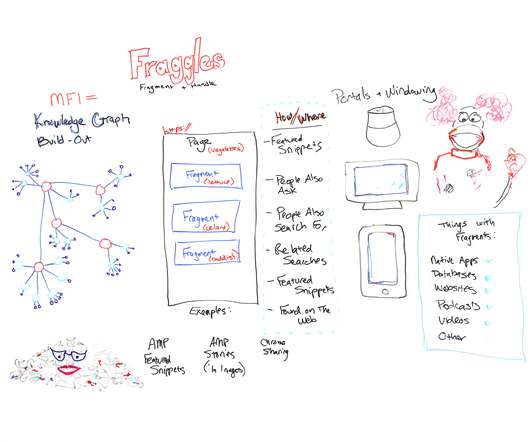 Fraggles
Fragment + Handle
MFI =
Knowledge Graph
Build-Out
https//
Page
(vegetables)
Fragment
(lettuce)
Fragment
(celary)
Fragment
(raddish)
Examples:
AMP
Featured
Snippets
AMP
Stories
(in Images)
Chrome
Sharing
How//Where
- Featured
Snippets
- People Also
Ask
- People Also
Search For
- Related
Searches
- Featured
Snippets
- Found on The
Web
Portals + Windowing
Things with
Fragments:
Native Apps
Databases
Websites
Podcasts
Videos
Other